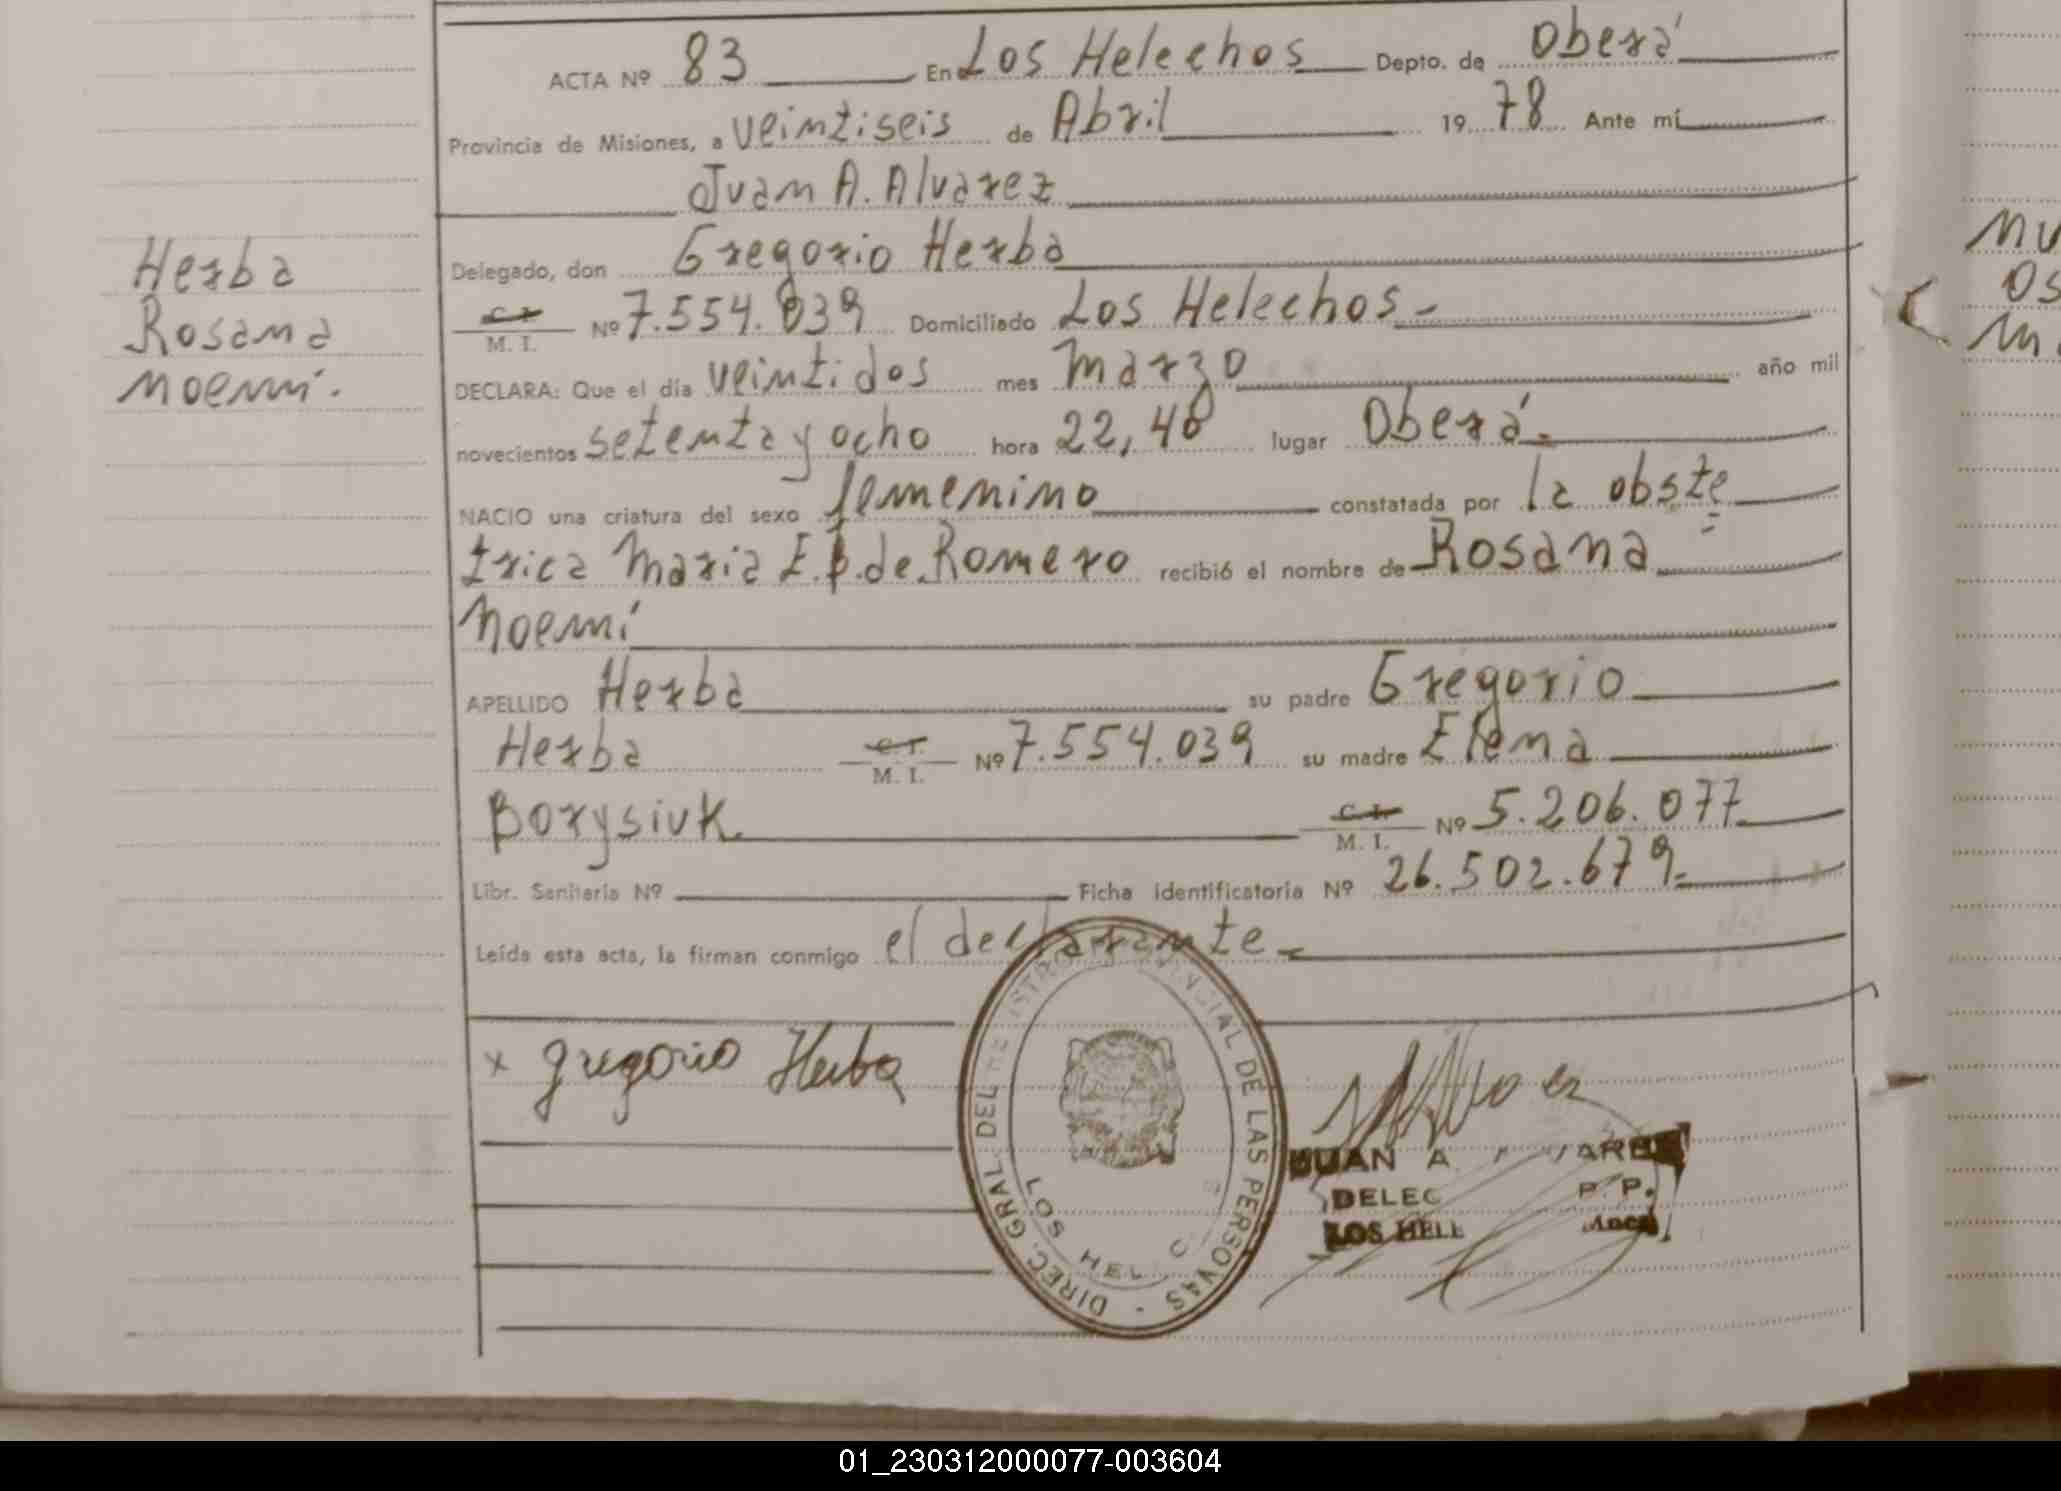 ACTA Nº 83 En Los Helechos Depto. de Oberá
Provincia de Misiones, a veintiseis de Abril 19 78 Ante mí
Juan A. Alvarez
Delegado, don Gregorio Herba
C. I.
M. I. Nº 7.554.039 Domiciliado Los Helechos -
DECLARA: Que el día veintidos mes Marzo año mil
novecientos setenta y ocho hora 22,40 lugar Oberá.-
NACIO una criatura del sexo femenino constatada por la obste
=
trica Maria E. P. de Romero recibió el nombre de Rosana
Noemí
APELLIDO Herba su padre Gregorio
Herba C. I. M. I. Nº 7.554.039 su madre Elena
Borysiuk. C. I. M. I. Nº 5.206.077
Libr. Sanitaria Nº Ficha identificatoria Nº 26.502.679.-
Leída esta acta, la firman conmigo el declarante -
Herba
Rosana
Noemí.
x Gregorio Herba
DIREC. GRAL. DEL DE LAS PERSONAS -
LOS HEL
JUAN A
DELEG P. P.
LOS HELE
Nu
Os
01_230312000077-003604